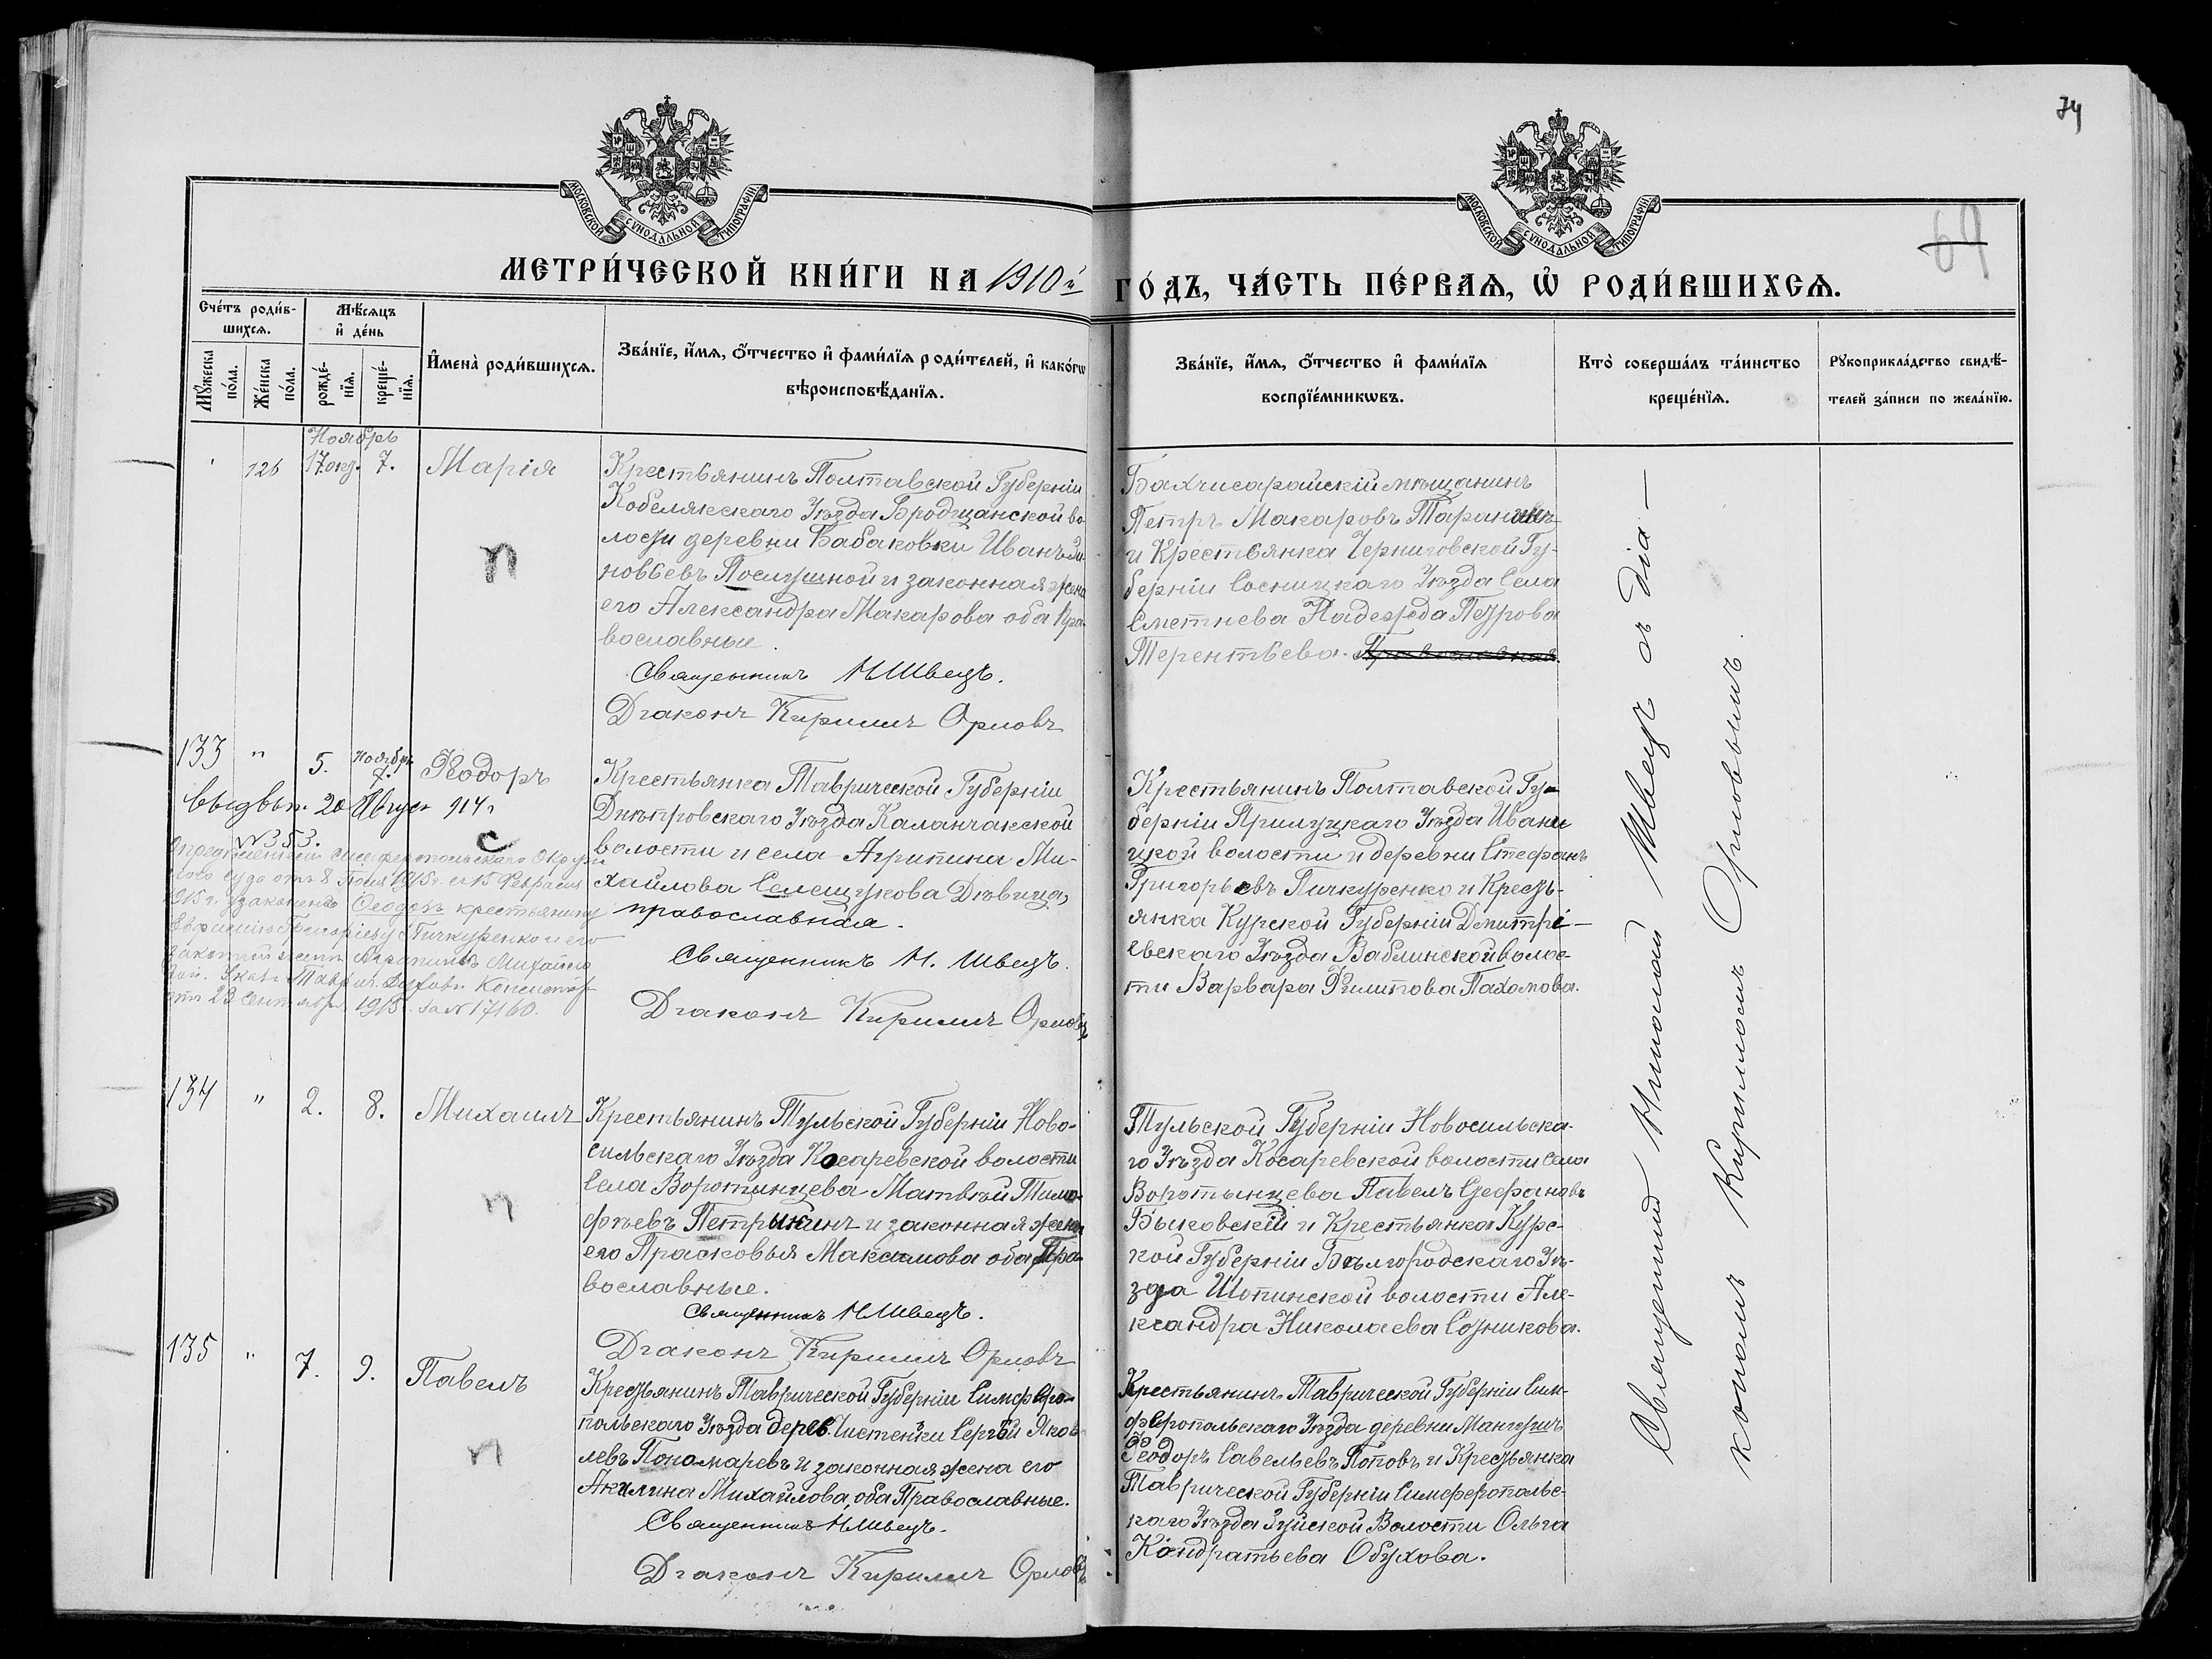 74
69
МОСКОВСКОЙ СѴНОДАЛЬНОЙ ТИПОГРАФІИ
МОСКОВСКОЙ СѴНОДАЛЬНОЙ ТИПОГРАФІИ
МЕТРИ́ЧЕСКОЙ КНИ́ГИ НА 1910й ГО́ДЪ, ЧА́СТЬ ПЕ́РВАѦ, Ѽ РОДИ́ВШИХСѦ.
Сче́тъ роди́в-
шихсѧ.
Мꙋ́жеска по́ла.
Же́нска по́ла.
Мѣ́сѧцъ
и҆ де́нь
рожде́-
нїѧ.
креще́-
нїѧ.
И҆мена̀ роди́вшихсѧ.
Зва́нїе, и҆́мѧ, ѻ҆́тчество и҆ фами́лїѧ роди́телей, и҆ како́гѡ
вѣроисповѣ́данїѧ.
Зва́нїе, и҆́мѧ, ѻ҆́тчество и҆ фами́лїѧ
воспрїе́мникѡвъ.
Кто̀ соверша́лъ та́инство
креще́нїѧ.
Рꙋкоприкла́дство свидѣ́-
телей за́писи по жела́нїю.
Ноябрь
126 17 окт. 7. Марія
Крестьянинъ Полтавской Губерніи
Кобелякскаго Уѣзда Бродщанской во-
лости деревни Бабаковки Иванъ Зи-
новьевъ Послушной и законная жена
его Александра Макарова оба Пра-
вославные.
Священникъ Н Швецъ.
Діаконъ Кириллъ Орловъ
п
Бахчисарайскій мѣщанинъ
Петръ Макаровъ
и Крестьянка Черниговской Гу-
берніи Сосницкаго Уѣзда Села
Сметнева Надежда Петрова
Терентьева. Православная.
133 " 5. Ноябрь 7. Ѳеодоръ
выд вып. 20 Август 914 г
№ 353.
с
Опредѣленіемъ Симферопольскаго Окруж
наго суда отъ 8 Іюля 1915 г. и 15 Февраля
1915 г. узаконенъ Ѳеодоръ крестьянину
Григорьеву Пичкуренко и его
законной женѣ Агрипинѣ Михайло
вой. Указъ Таврич. Духовн. Консистор
отъ 23 Сентября 1915 г. за № 17160.
Крестьянка Таврической Губерніи
Днѣпровскаго Уѣзда Каланчакской
волости и села Агрипина Ми-
хайлова Селещукова Дѣвица,
православная.
Священникъ Н. Швецъ.
Діаконъ Кириллъ Орловъ
Крестьянинъ Полтавской Гу-
берніи Прилуцкаго Уѣзда Иван
ицкой волости и деревни Стефанъ
Григорьевъ Пичкуренко и Кресть-
янка Курской Губерніи Дмитрі-
евскаго Уѣзда Ваблинской волос-
ти Варвара Филипова Пахомова.
134 " 2. 8. Михаилъ
п
Крестьянинъ Тульской Губерніи Ново-
сильскаго Уѣзда Косаревской волости
Села Воротынцева Матвѣй Тимо-
фѣевъ Петрыкинъ и законная жена
его Прасковья Максимова оба Пра-
вославные.
Священникъ Н Швецъ.
Діаконъ Кириллъ Орловъ
Тульской Губерніи Новосильска-
го Уѣзда Косаревской волости села
Воротынцева Павелъ Стефановъ
Быковскій и Крестьянка Курс-
кой Губерніи Бѣлгородскаго Уѣ-
зда Шопинской волости Але-
ксандра Николаева Сотникова.
135 " 7. 9. Павелъ
п
Крестьянинъ Таврической Губерніи Симферо-
польскаго Уѣзда дерев. Чистенки Сергѣй Яков
левъ Пономаревъ и законная жена его
Акилина Михайлова, оба Православные.
Священникъ Н Швецъ.
Діаконъ Кириллъ Орловъ
Крестьянинъ Таврической Губерніи Сим-
феропольскаго Уѣзда деревни Мангушъ
Ѳеодоръ Савельевъ Поповъ и Крестьянка
Таврической Губерніи Симферопольс-
каго Уѣзда Зуйской Волости Ольга
Кондратьева Обухова.
Священникъ Николай Швецъ съ діа—
кономъ Кирилломъ Орловымъ.